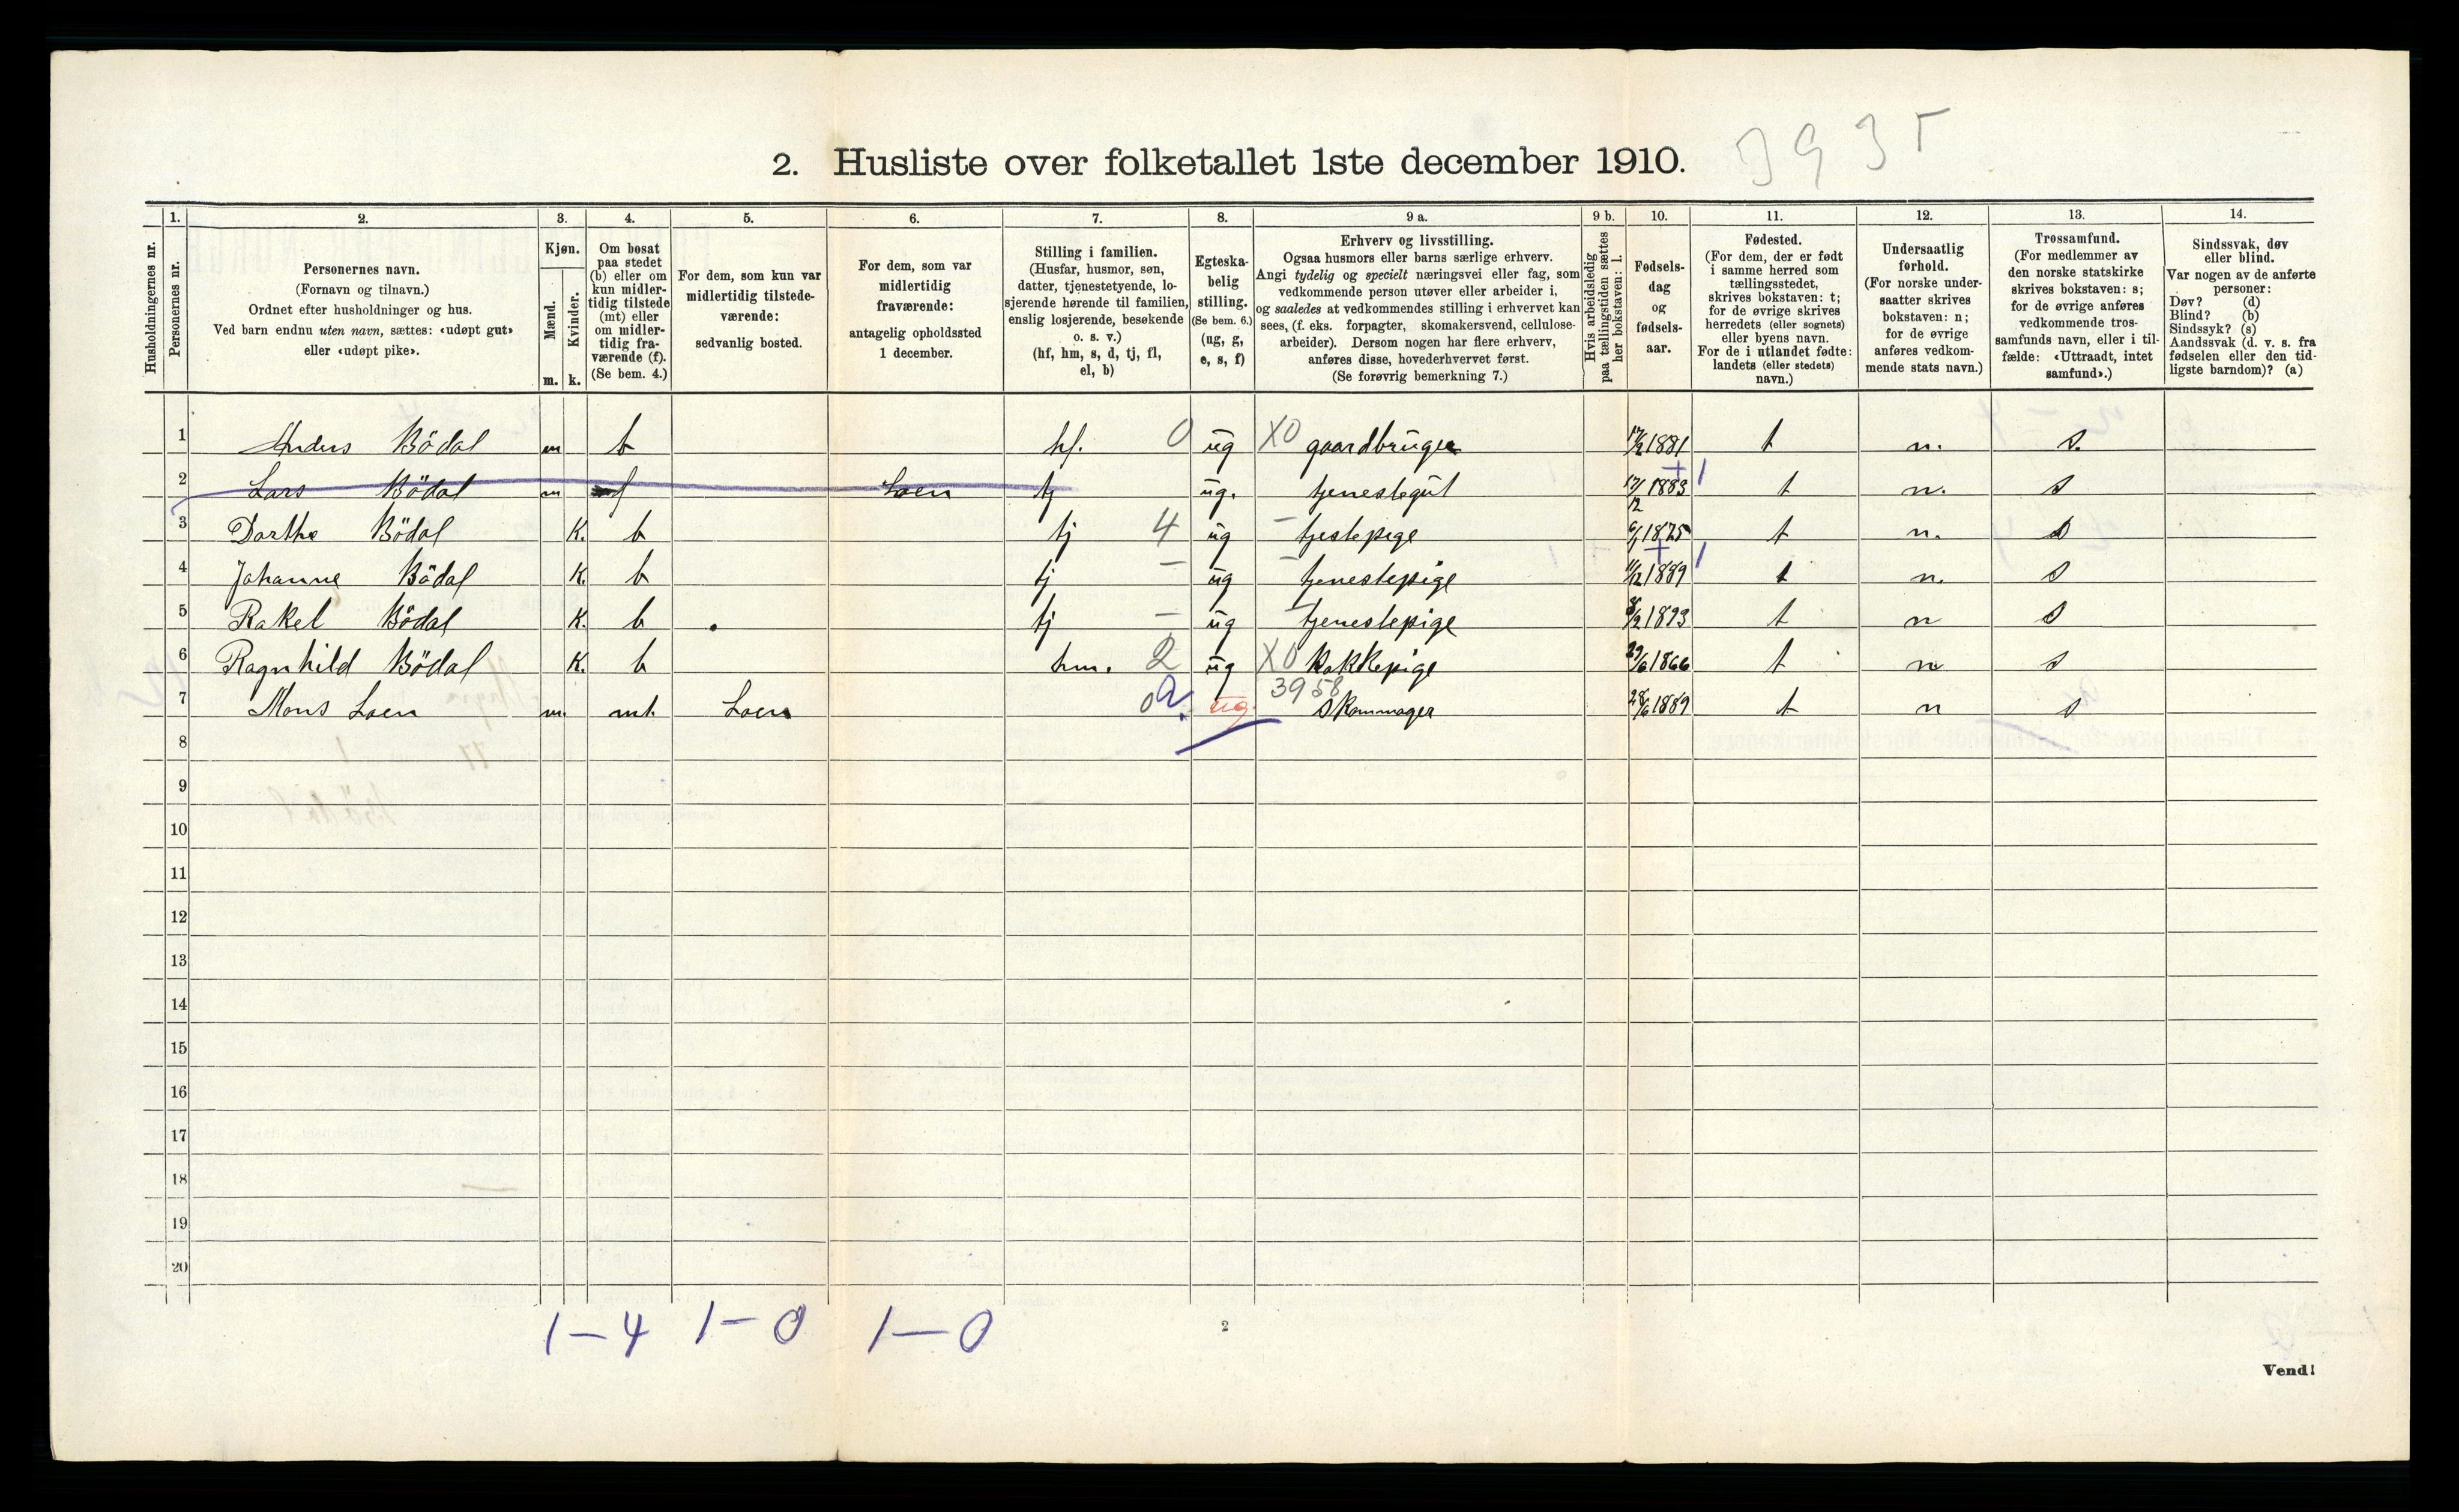 2. Husliste over folketallet 1ste december 1910.
3935
Husholdningernes nr.
1. Personernes nr.
2. Personernes navn. (Fornavn og tilnavn.) Ordnet efter husholdninger og hus. Ved barn endnu uten navn, sættes: «udøpt gut» eller «udøpt pike».
3. Kjøn. Mænd. m. Kvinder. k.
4. Om bosat paa stedet (b) eller om kun midlertidig tilstede (mt) eller om midlertidig fraværende (f). (Se bem. 4.)
5. For dem, som kun var midlertidig tilstedeværende: sedvanlig bosted.
6. For dem, som var midlertidig fraværende: antagelig opholdssted 1 december.
7. Stilling i familien. (Husfar, husmor, søn, datter, tjenestetyende, losjerende hørende til familien, enslig losjerende, besøkende o. s. v.) (hf, hm, s, d, tj, fl, el, b)
8. Egteskabelig stilling. (Se bem. 6.) (ug, g, e, s, f)
9 a. Erhverv og livsstilling. Ogsaa husmors eller barns særlige erhverv. Angi tydelig og specielt næringsvei eller fag, som vedkommende person utøver eller arbeider i, og saaledes at vedkommendes stilling i erhvervet kan sees, (f. eks. forpagter, skomakersvend, cellulosearbeider). Dersom nogen har flere erhverv, anføres disse, hovederhvervet først. (Se forøvrig bemerkning 7.)
9 b. Hvis arbeidsledig paa tællingstiden sættes her bokstaven: l.
10. Fødselsdag og fødselsaar.
11. Fødested. (For dem, der er født i samme herred som tællingsstedet, skrives bokstaven: t; for de øvrige skrives herredets (eller sognets) eller byens navn. For de i utlandet fødte: landets (eller stedets) navn.)
12. Undersaatlig forhold. (For norske undersaatter skrives bokstaven: n; for de øvrige anføres vedkommende stats navn.)
13. Trossamfund. (For medlemmer av den norske statskirke skrives bokstaven: s; for de øvrige anføres vedkommende trossamfunds navn, eller i tilfælde: «Uttraadt, intet samfund».)
14. Sindssvak, døv eller blind. Var nogen av de anførte personer: Døv? (d) Blind? (b) Sindssyk? (s) Aandssvak (d. v. s. fra fødselen eller den tidligste barndom)? (a)
1 Anders Bödal m b hf. 0 ug X0 gaardbruger 1881 t n. s.
2 Lars Bödal m f Loen tj ug. tjenestegut 17/12 1883 t n. s
3 Dorthe Bödal K. b tj 4 ug – tjestepige 6/1 1875 t n. s
4 Johanne Bödal K. b tj – ug – tjenestepige 11/12 1889 t n. s
5 Rakel Bödal K. b tj – ug – tjenestepige 1893 t n s
6 Ragnhild Bödal K. b hm. 2 ug X0 Kokkepige 29/6 1866 t n s
7 Mons Loen m. mt. Loen 0 ug. 3958 Skommager 28/6 1889 t n s
8
9
10
11
12
13
14
15
16
17
18
19
20
1–4 1–0 1–0
2
Vend!